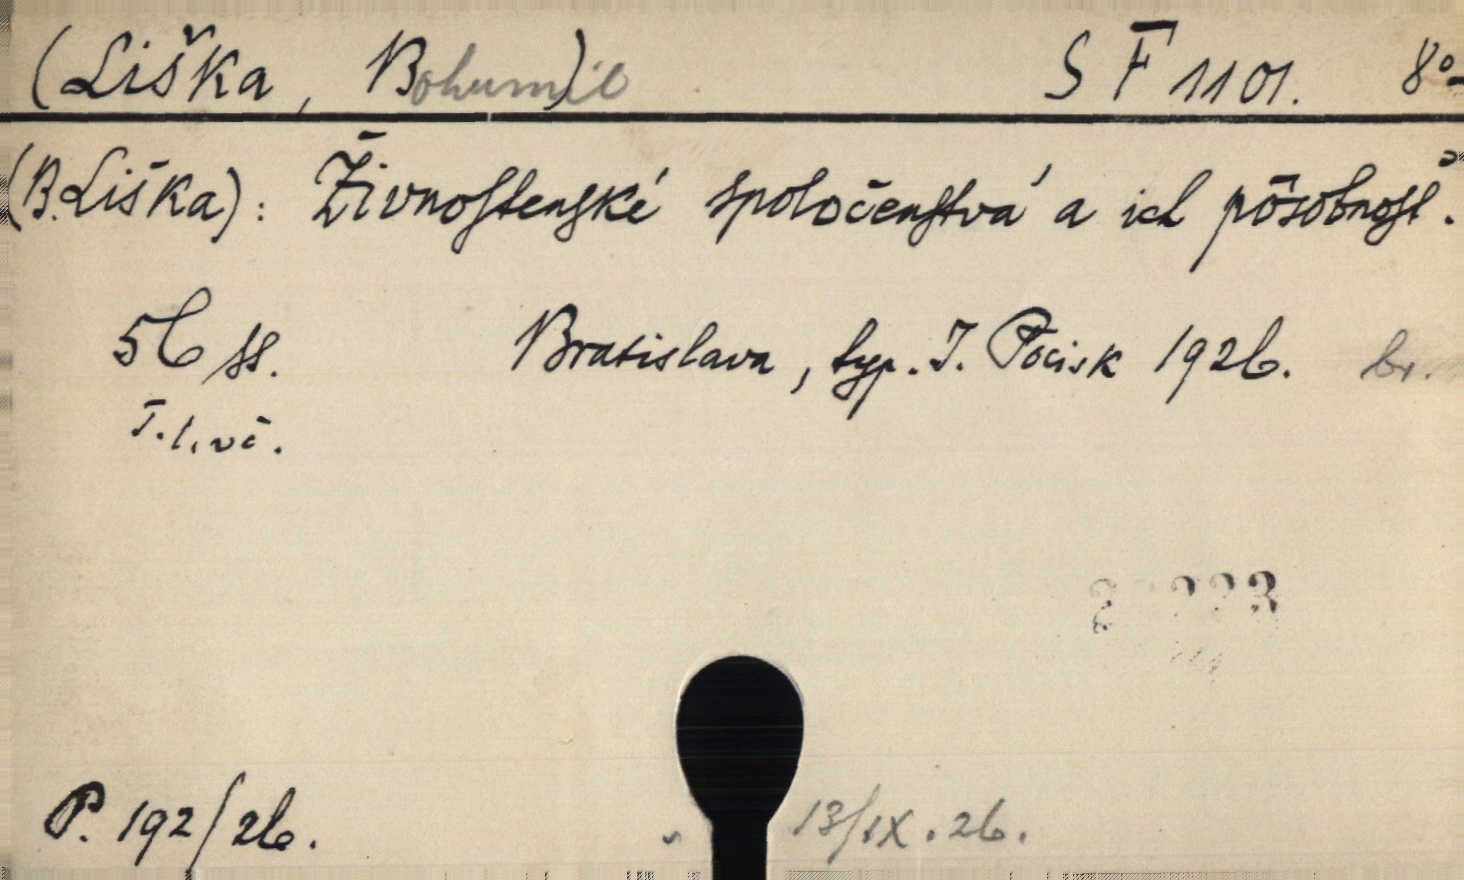 (Liška, Bohumil) S F 1101. 8°
(B. Liška): Živnostenské spoločenstvá a ich pôsobnosť.
56 ss. Bratislava, typ. I. Pocisk 1926. br.
T. l. vč.
P. 192/26. 13/IX.26.